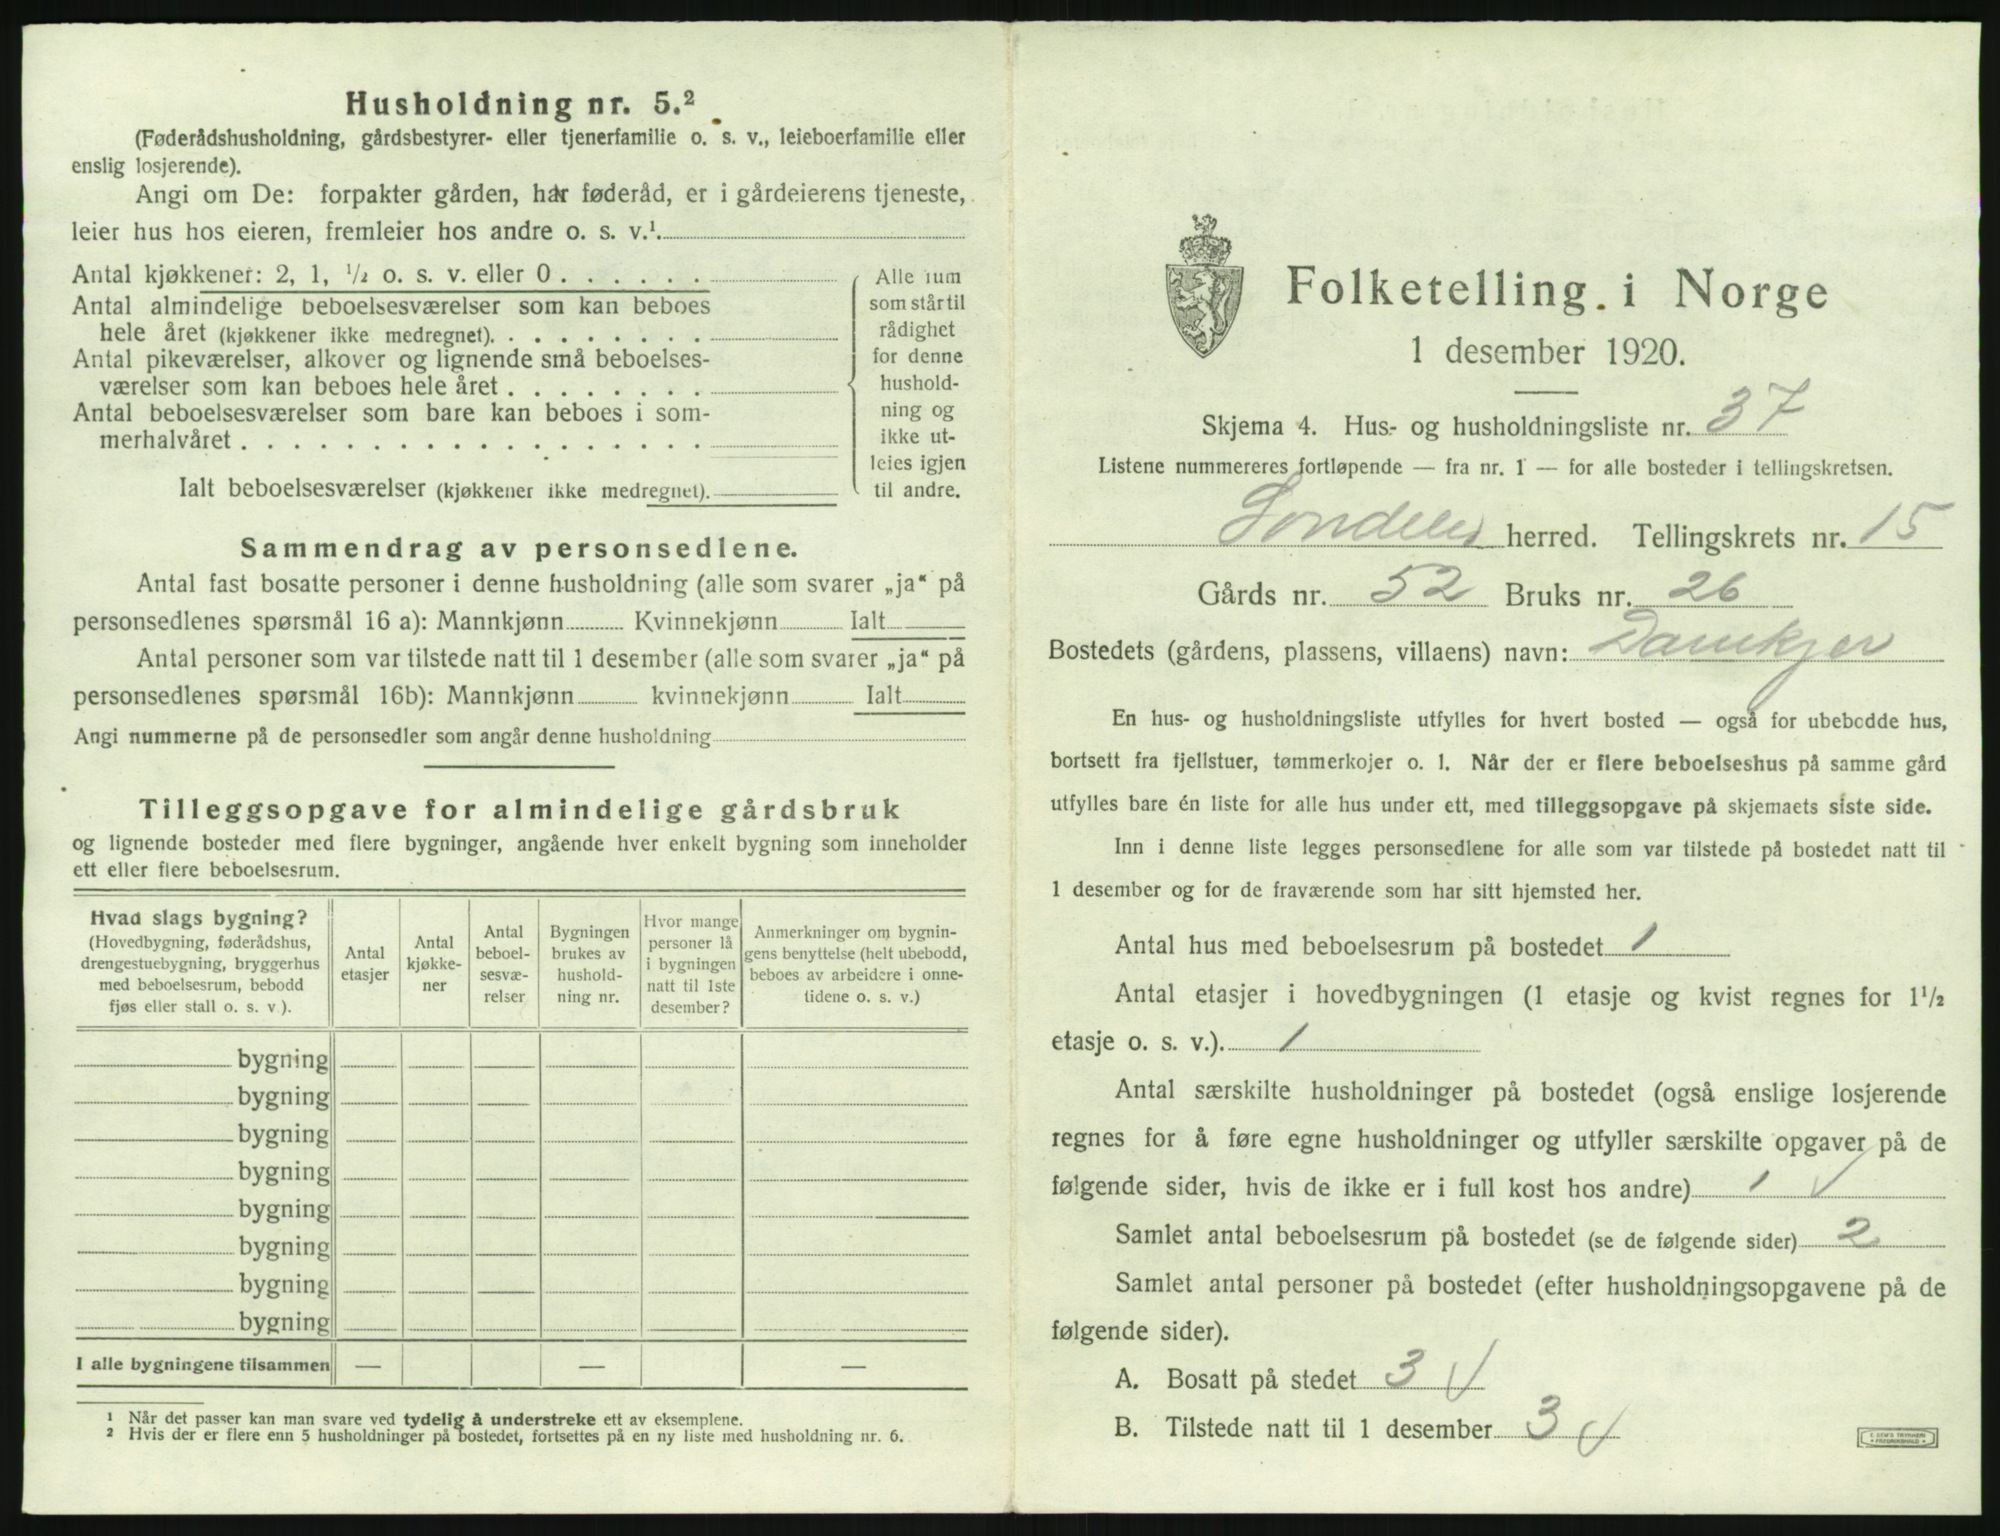 Husholdning nr. 5.²
(Føderådshusholdning, gårdsbestyrer- eller tjenerfamilie o. s. v., leieboerfamilie eller
enslig losjerende).
Angi om De: forpakter gården, har føderåd, er i gårdeierens tjeneste,
leier hus hos eieren, fremleier hos andre o. s. v.¹
Antal kjøkkener: 2, 1, ½ o. s. v. eller 0 . . . . . .
Antal almindelige beboelsesværelser som kan beboes
hele året (kjøkkener ikke medregnet). . . . . . . . .
Antal pikeværelser, alkover og lignende små beboelses-
værelser som kan beboes hele året . . . . . . . .
Antal beboelsesværelser som bare kan beboes i som-
merhalvåret . . . . . . . . . . . . . . . . . .
Ialt beboelsesværelser (kjøkkener ikke medregnet).
Alle rum
som står til
rådighet
for denne
hushold-
ning og
ikke ut-
leies igjen
til andre.
Sammendrag av personsedlene.
Antal fast bosatte personer i denne husholdning (alle som svarer „ja“ på
personsedlenes spørsmål 16 a): Mannkjønn Kvinnekjønn Ialt
Antal personer som var tilstede natt til 1 desember (alle som svarer „ja“ på
personsedlenes spørsmål 16b): Mannkjønn kvinnekjønn Ialt
Angi nummerne på de personsedler som angår denne husholdning
Tilleggsopgave for almindelige gårdsbruk
og lignende bosteder med flere bygninger, angående hver enkelt bygning som inneholder
ett eller flere beboelsesrum.
Hvad slags bygning?
(Hovedbygning, føderådshus,
drengestuebygning, bryggerhus
med beboelsesrum, bebodd
fjøs eller stall o. s. v.).
Antal
etasjer
Antal
kjøkke-
ner
Antal
beboel-
sesvæ-
relser
Bygningen
brukes av
hushold-
ning nr.
Hvor mange
personer lå
i bygningen
natt til 1ste
desember?
Anmerkninger om bygnin-
gens benyttelse (helt ubebodd,
beboes av arbeidere i onne-
tidene o. s. v.)
bygning
bygning
bygning
bygning
bygning
bygning
bygning
bygning
I alle bygningene tilsammen — — —
¹ Når det passer kan man svare ved tydelig å understreke ett av eksemplene.
² Hvis der er flere enn 5 husholdninger på bostedet, fortsettes på en ny liste med husholdning nr. 6.
Folketelling i Norge
1 desember 1920.
Skjema 4. Hus- og husholdningsliste nr. 37
Listene nummereres fortløpende — fra nr. 1 — for alle bosteder i tellingskretsen.
Søndeled herred. Tellingskrets nr. 15
Gårds nr. 52 Bruks nr. 26
Bostedets (gårdens, plassens, villaens) navn:
En hus- og husholdningsliste utfylles for hvert bosted — også for ubebodde hus,
bortsett fra fjellstuer, tømmerkojer o. l. Når der er flere beboelseshus på samme gård
utfylles bare én liste for alle hus under ett, med tilleggsopgave på skjemaets siste side.
Inn i denne liste legges personsedlene for alle som var tilstede på bostedet natt til
1 desember og for de fraværende som har sitt hjemsted her.
Antal hus med beboelsesrum på bostedet 1
Antal etasjer i hovedbygningen (1 etasje og kvist regnes for 1½
etasje o. s. v.). 1
Antal særskilte husholdninger på bostedet (også enslige losjerende
regnes for å føre egne husholdninger og utfyller særskilte opgaver på de
følgende sider, hvis de ikke er i full kost hos andre) 1 √
Samlet antal beboelsesrum på bostedet (se de følgende sider) 2
Samlet antal personer på bostedet (efter husholdningsopgavene på de
følgende sider).
A. Bosatt på stedet 3 √
B. Tilstede natt til 1 desember 3 √